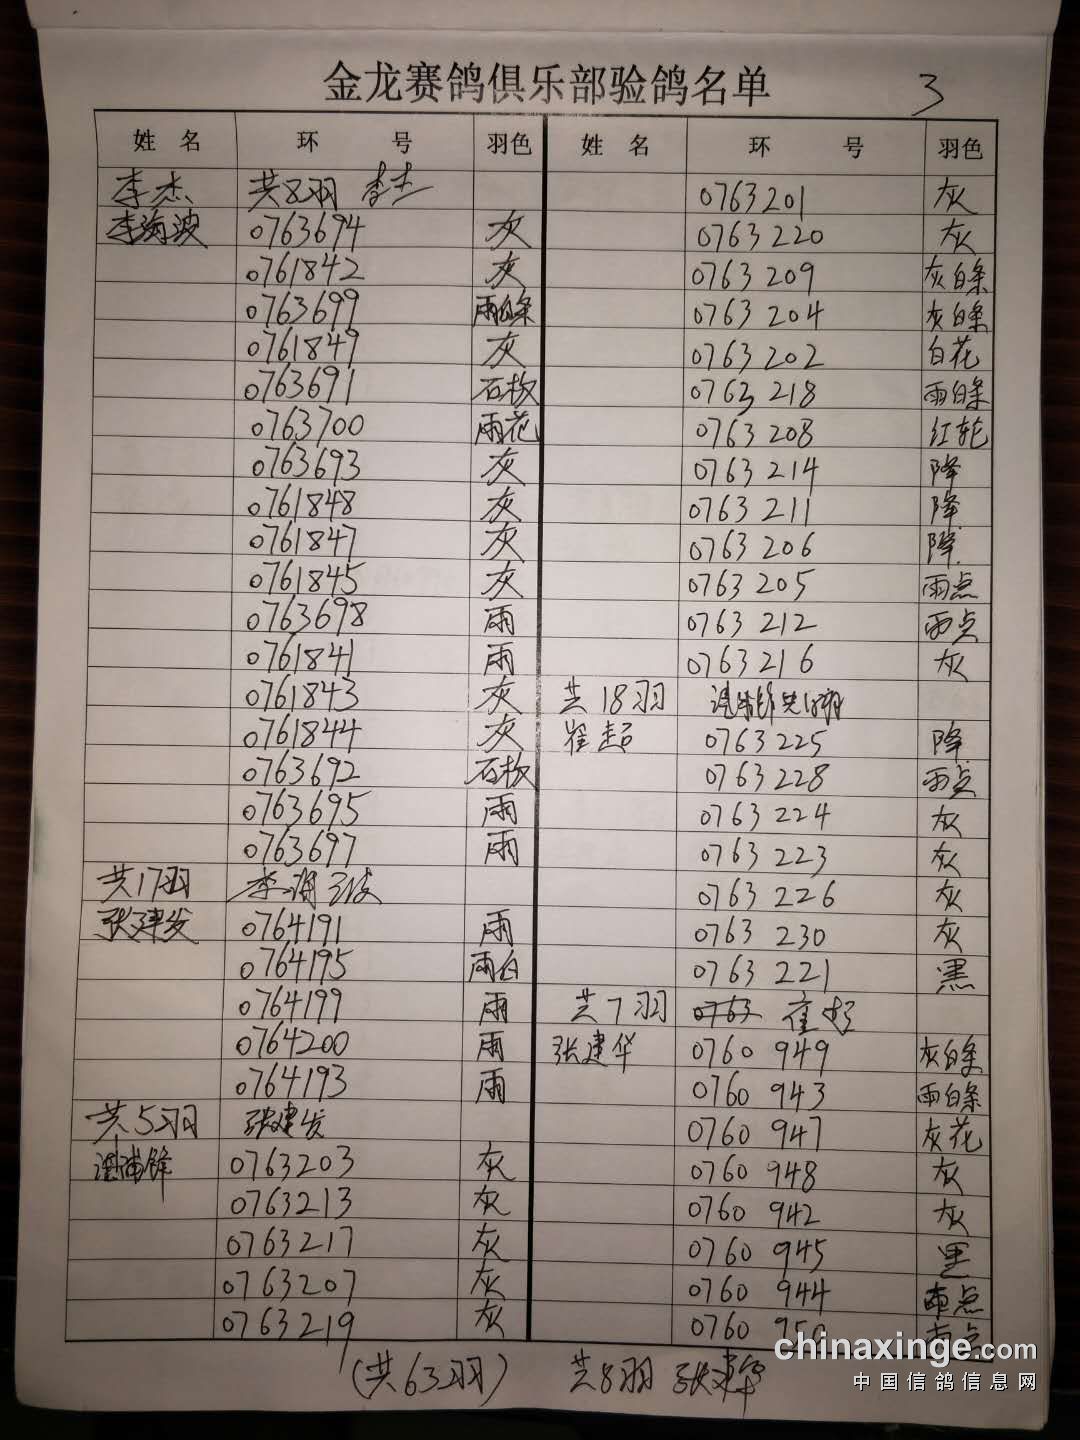 金龙赛鸽俱乐部验鸽名单
3
姓 名 环 号 羽色
李杰 共8羽 李杰
李海波 0763694 灰
0761842 灰
0763699 雨白条
0761849 灰
0763691 石板
0763700 雨花
0763693 灰
0761848 灰
0761847 灰
0761845 灰
0763698 雨
0761841 雨
0761843 灰
0761844 灰
0763692 石板
0763695 雨
0763697 雨
共17羽 李海波
张建发 0764191 雨
0764195 雨白
0764199 雨
0764200 雨
0764193 雨
共5羽 张建发
0763203 灰
0763213 灰
0763217 灰
0763207 灰
0763219 灰
姓 名 环 号 羽色
0763201 灰
0763220 灰
0763209 灰白条
0763204 灰白条
0763202 白花
0763218 雨白条
0763208 红轮
0763214 降
0763211 降
0763206 降
0763205 雨点
0763212 雨点
0763216 灰
共18羽
崔超 0763225 降
0763228 雨点
0763224 灰
0763223 灰
0763226 灰
0763230 灰
0763221 黑
共7羽 0763 崔超
张建华 0760949 灰白条
0760943 雨白条
0760947 灰花
0760948 灰
0760942 灰
0760945 黑
0760944 雨点
0760950 雨点
(共63羽) 共8羽 张建华
chinaxinge.com
中国信鸽信息网